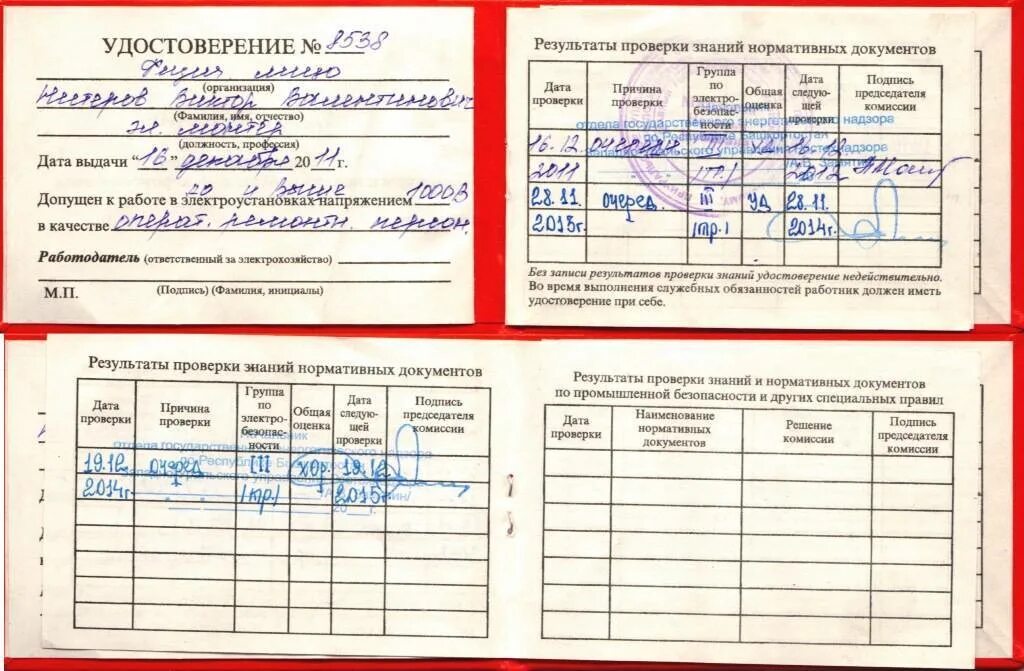 УДОСТОВЕРЕНИЕ № 8538
Физич. лицо
(организация)
Виктор Валентинович
(Фамилия, имя, отчество)
эл. монтер
(должность, профессия)
Дата выдачи "16" декабря 2011 г.
Допущен к работе в электроустановках напряжением до и выше 1000В
в качестве операт. ремонтн. персон.
Работодатель (ответственный за электрохозяйство)
М.П. (Подпись) (Фамилия, инициалы)
Результаты проверки знаний нормативных документов
Дата проверки
Причина проверки
Группа по электро-безопас-ности
Общая оценка
Дата следую-щей проверки
Подпись председателя комиссии
отдела государственного энергетического надзора
по Республике Башкортостан
16.12. очередн III 16.12.
2011 (тр.) 2012
28.11. очеред. III уд 28.11.
2013г. (тр.) 2014г.
Без записи результатов проверки знаний удостоверение недействительно.
Во время выполнения служебных обязанностей работник должен иметь
удостоверение при себе.
Результаты проверки знаний нормативных документов
Дата проверки
Причина проверки
Группа по электро-безопас-ности
Общая оценка
Дата следую-щей проверки
Подпись председателя комиссии
Начальник
отдела государственного энергетического надзора
по Республике
19.12. очеред III хор. 19.12
2014г. (тр.) 2015г.
20 г.
Результаты проверки знаний и нормативных документов
по промышленной безопасности и других специальных правил
Дата проверки
Наименование нормативных документов
Решение комиссии
Подпись председателя комиссии